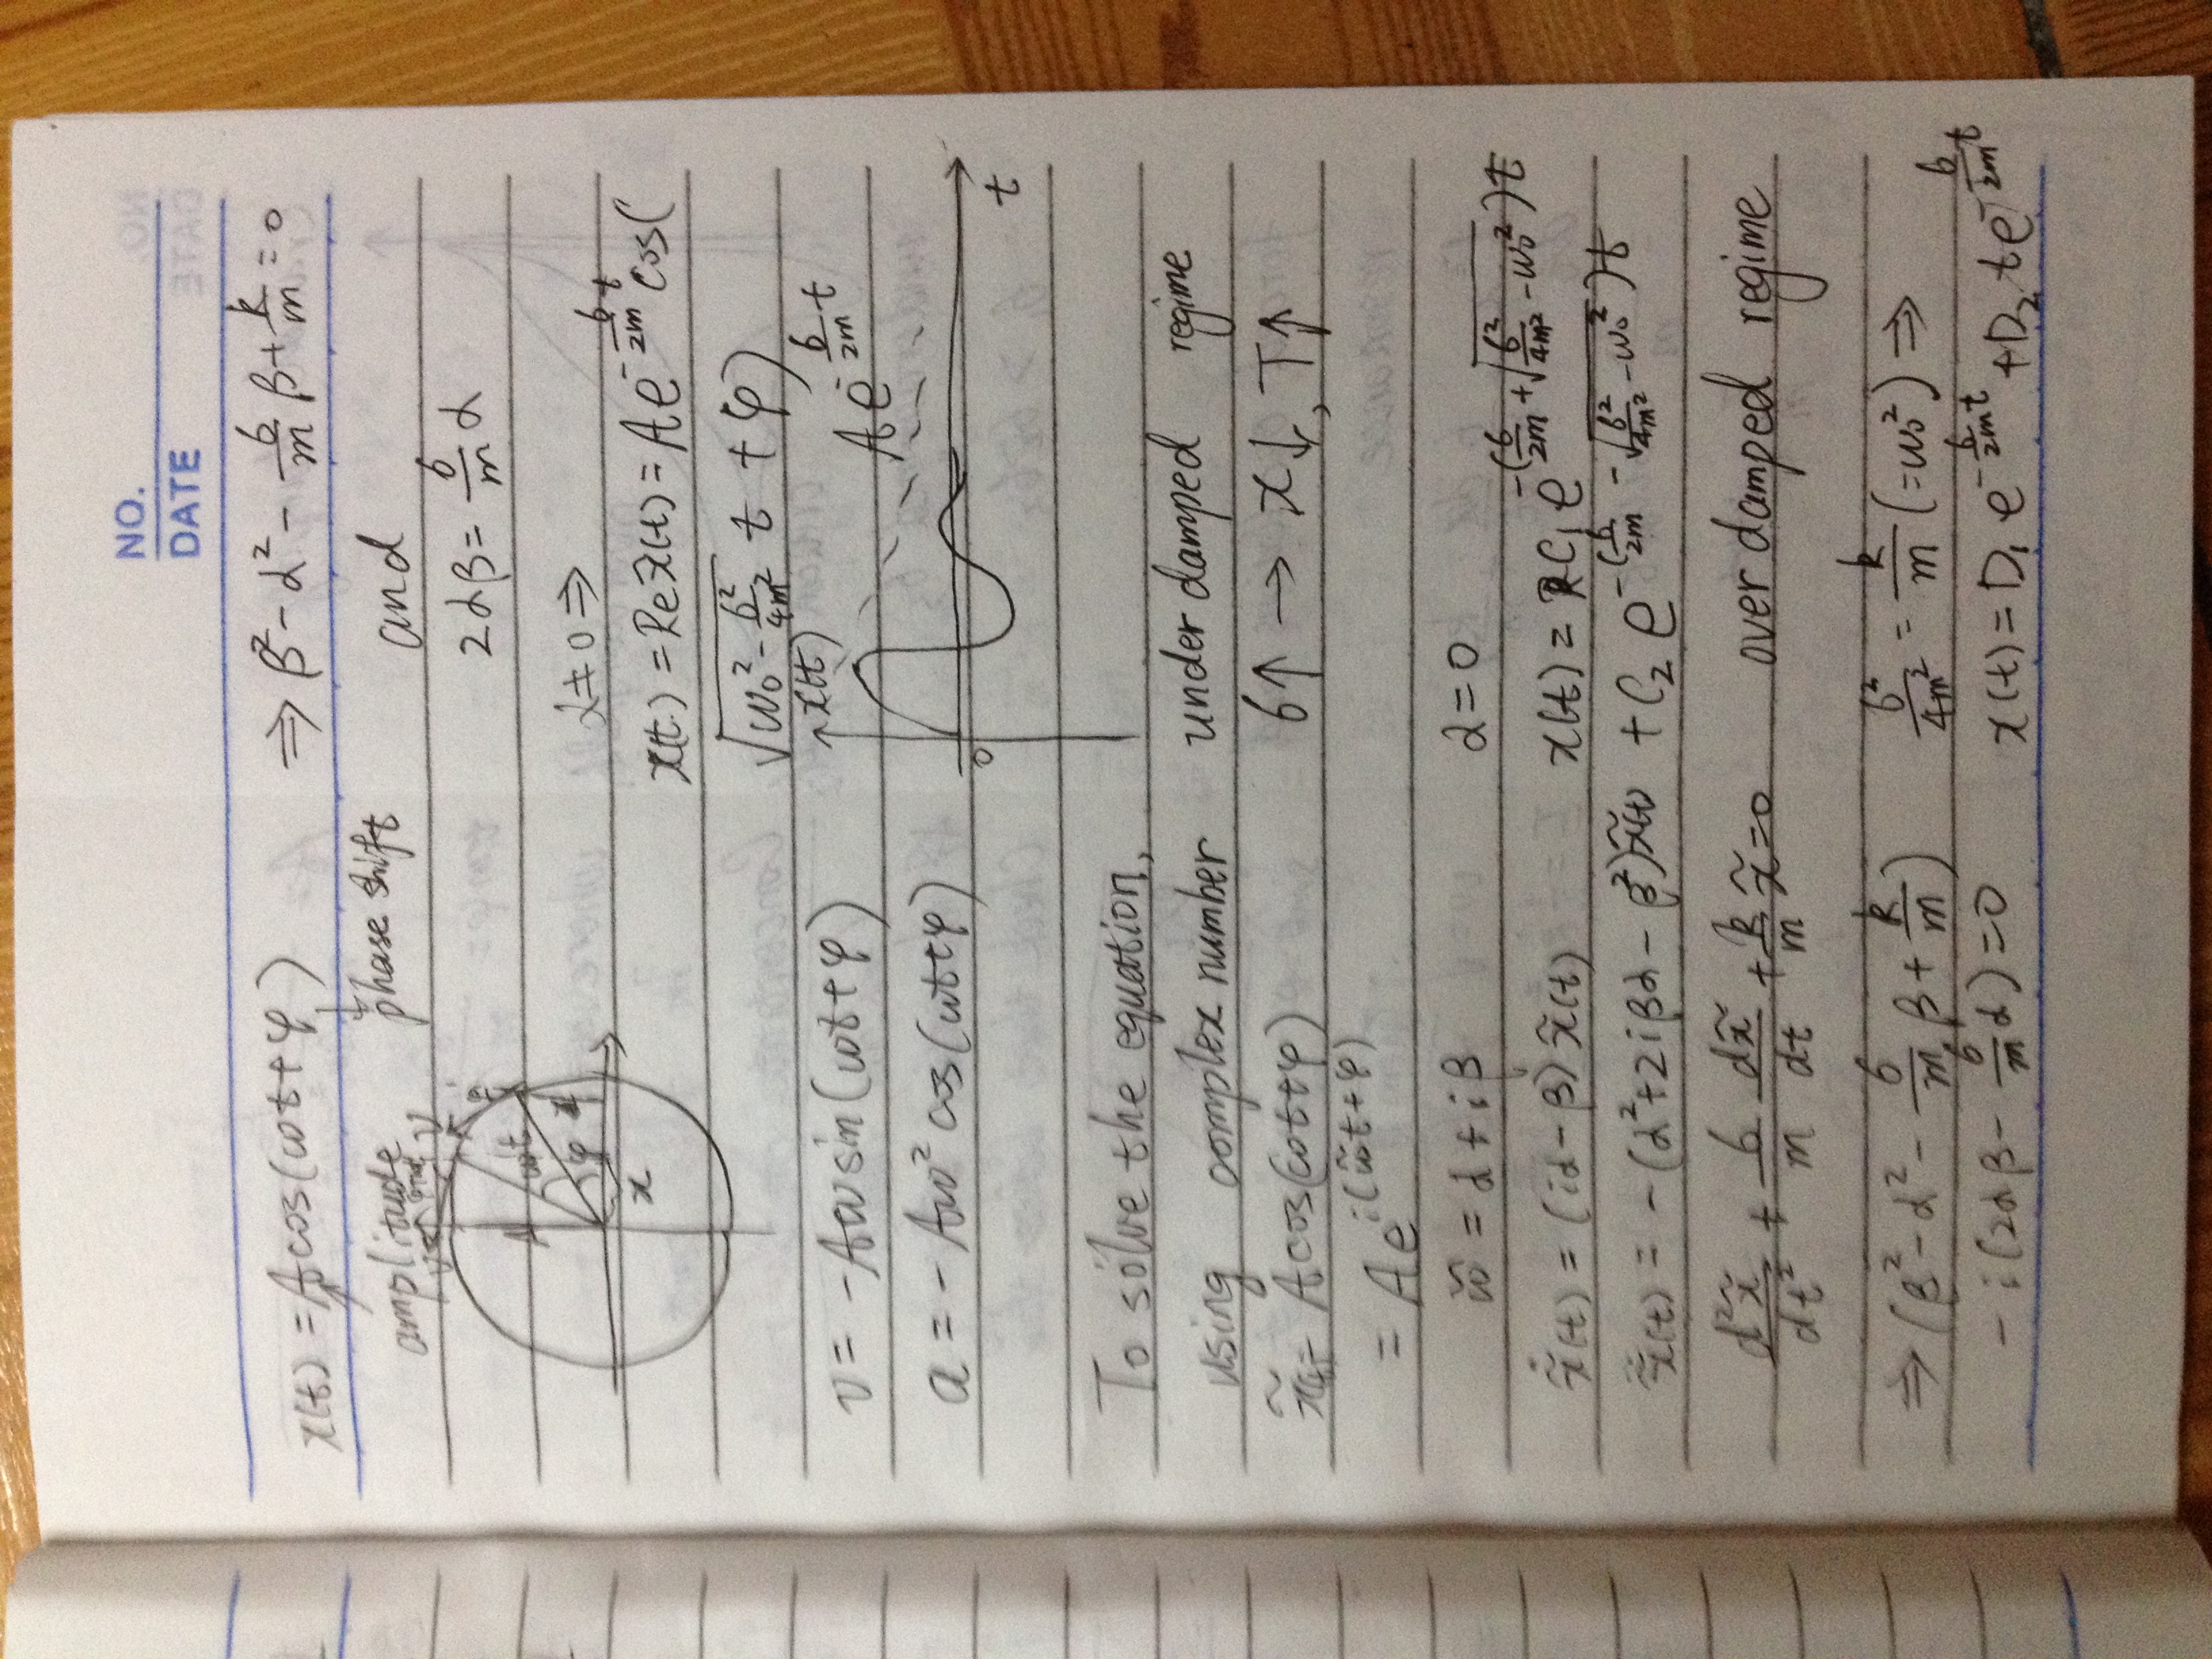 NO.
DATE
x(t) = A cos(ωt+φ)
amplitude
phase shift
v
v
A
ωt
φ
x
v = -Aω sin(ωt+φ)
a = -Aω² cos(ωt+φ)
To solve the equation,
using complex number
x̃(t) = A cos(ωt+φ)
= A e^{i(ω̃t+φ)}
ω̃ = α + iβ
x̃̇(t) = (iα - β) x̃(t)
x̃̈(t) = -(α²+2iβα - β²) x̃(t)
d²x̃/dt² + b/m dx̃/dt + k/m x̃ = 0
⇒ (β² - α² - b/m β + k/m)
- i(2αβ - b/m α) = 0
⇒ β² - α² - b/m β + k/m = 0
and
2αβ = b/m α
α ≠ 0 ⇒
x(t) = Re x̃(t) = A e^{-b/2m t} cos(
√(ω₀² - b²/4m²) t + φ)
x(t)
A e^{-b/2m t}
0
t
under damped regime
b↑ → x↓, T↑
α = 0
x(t) = C₁ e^{-(b/2m + √(b²/4m² - ω₀²))t}
+ C₂ e^{-(b/2m - √(b²/4m² - ω₀²))t}
over damped regime
b²/4m² = k/m (=ω₀²) ⇒
x(t) = D₁ e^{-b/2m t} + D₂ t e^{-b/2m t}